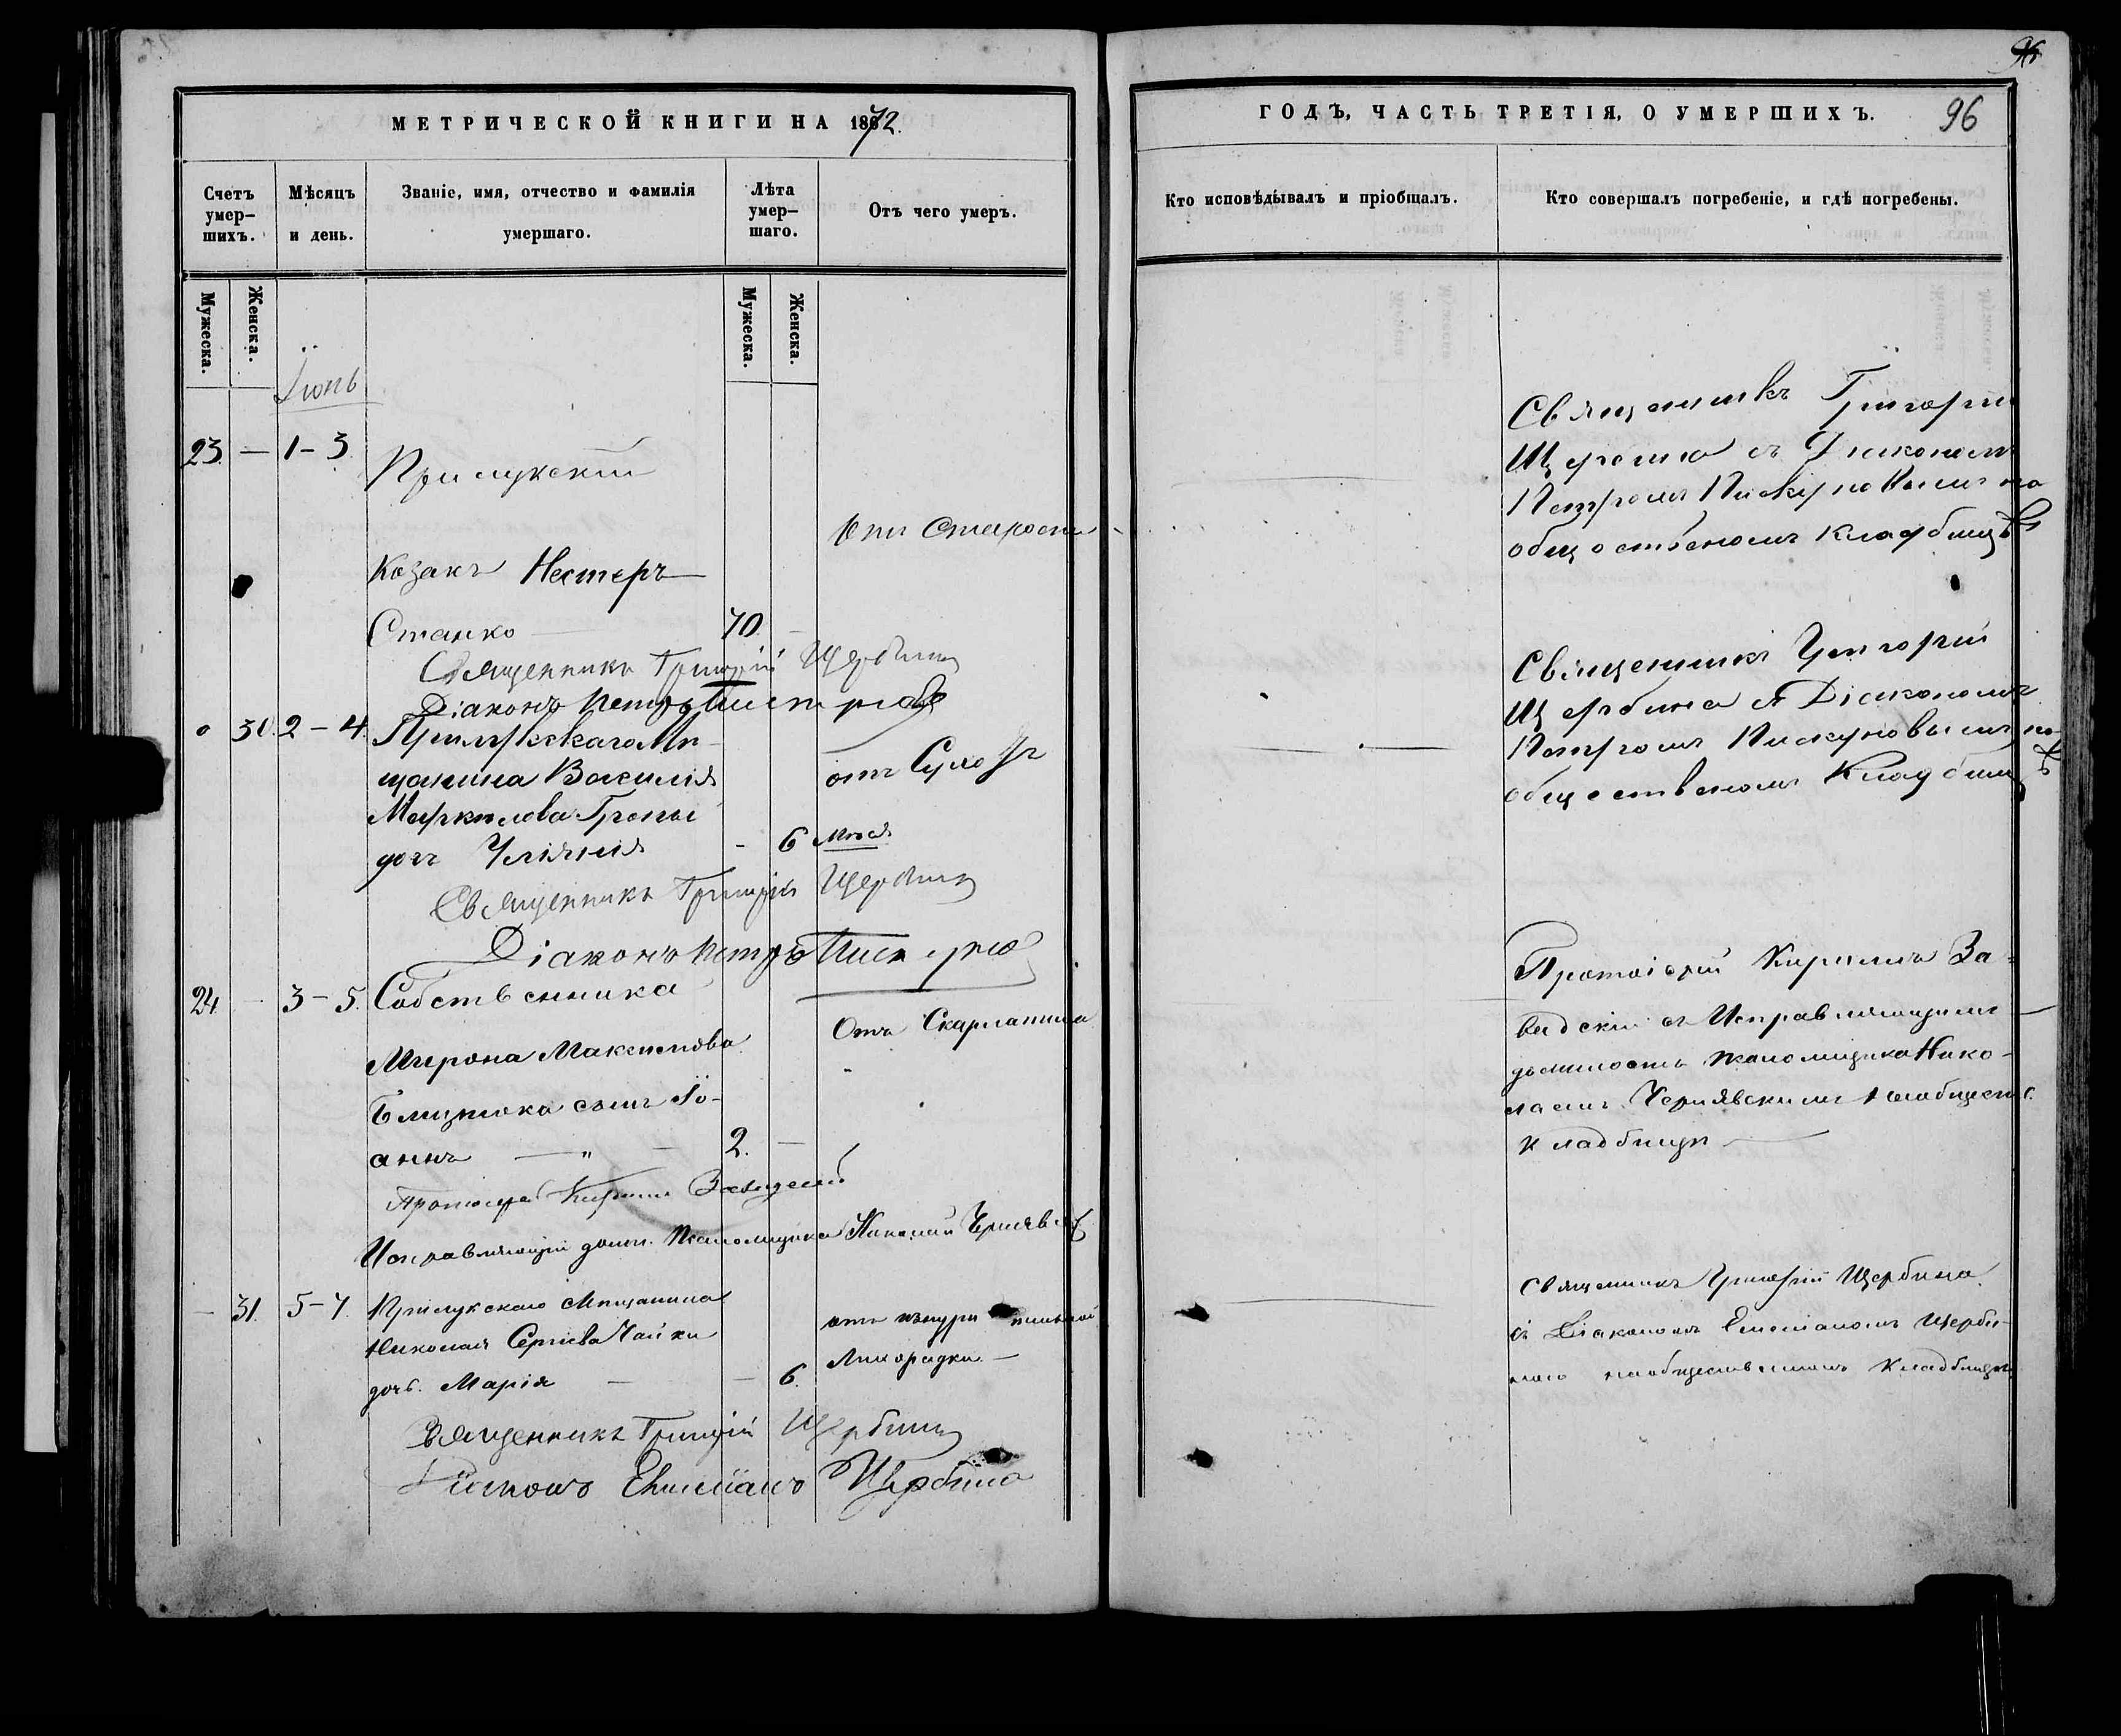 96
МЕТРИЧЕСКОЙ КНИГИ НА 1872.
ГОДЪ, ЧАСТЬ ТРЕТІЯ, О УМЕРШИХЪ.
96
Счетъ умер-шихъ.
Мѣсяцъ и день.
Званіе, имя, отчество и фамилія умершаго.
Лѣта умер-шаго.
Отъ чего умеръ.
Кто исповѣдывалъ и пріобщалъ.
Кто совершалъ погребеніе, и гдѣ погребены.
Мужеска.
Женска.
Мужеска.
Женска.
Іюнь
23. — 1-3.
Прилукский
Козакъ Нестеръ
Станко 70.
От старости
Священникъ Григорій
Щербина съ Діакономъ
Петромъ Пискуновымъ на
общественомъ кладбищѣ
Священникъ Григорій Щербина
Діаконъ Петръ
30. 2-4.
Прилукскаго Мѣ-
щанина Василія
Маркилова
доч Уліянія - 6 мѣся.
отъ Сухот
Священникъ Григорій
Щербина съ Діакономъ
Петромъ Пискуновымъ на
общественомъ Кладбищѣ
Священникъ Григорій Щербина
Діаконъ Петръ
24. 3-5.
Собственника
Мирона Максимова
сынъ Іо-
аннъ — " — 2. —
Отъ Скарлатина
Протоіерей Кирилъ За-
вадскій съ Исправляющимъ
должность псаломщика Нико-
лаемъ Чернявскимъ на обществ.
кладбищѣ
Протоіерей Кирилъ Завадскій
Исправляющій должн. Псаломщика Николай Чернявскій
— 31. 5-7.
Прилукскаго Мѣщанина
Николая Сергіева Чайки
дочь Марія — — 6.
отъ изнурительной
Лихорадки —
Священникъ Григорій Щербина
съ Діакономъ Емеліаномъ Щерби-
ною на общественномъ Кладбищѣ
Священникъ Григорій Щербина
Діаконъ Емеліанъ Щербина